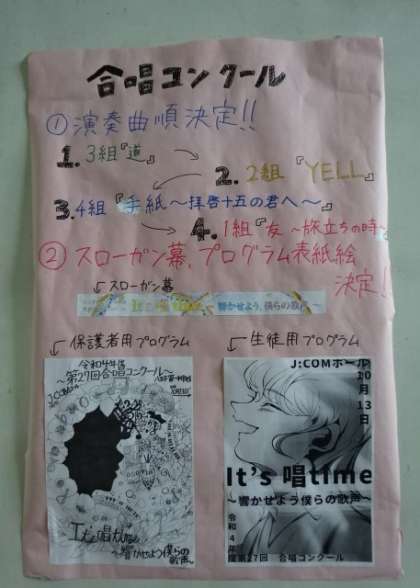 合唱コンクール
①演奏曲順決定!!
1. 3組『道』
2. 2組『YELL』
3. 4組『手紙〜拝啓十五の君へ〜』
4. 1組『友〜旅立ちの時〜』
②スローガン幕、プログラム表紙絵
決定!
スローガン幕
〜響かせよう、僕らの歌声〜
保護者用プログラム
生徒用プログラム
令和4年度
〜第27回合唱コンクール〜
It's 唱time
〜響かせよう僕らの歌声〜
J:COMホール
10月13日
It's 唱time
〜響かせよう僕らの歌声〜
令和4年度
第27回 合唱コンクール